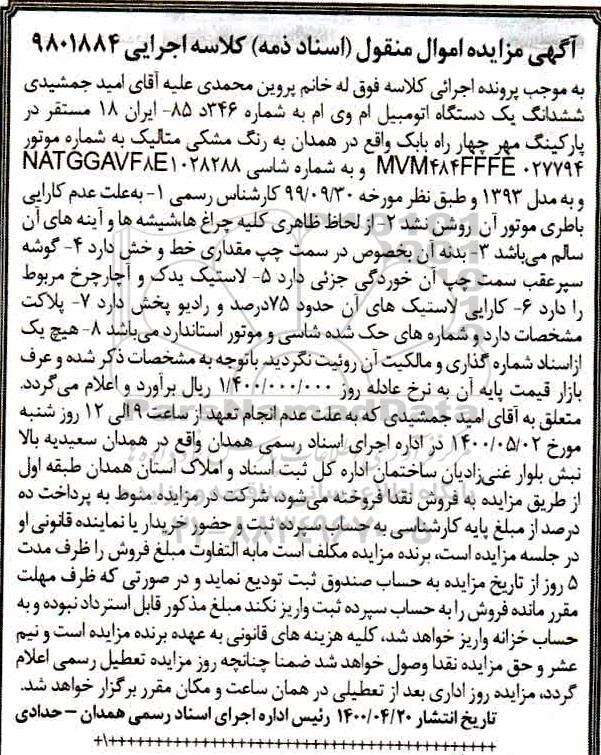 آگهی مزایده اموال منقول (اسناد ذمه) کلاسه اجرایی ۹۸۰۱۸۸۴
به موجب پرونده اجرائی کلاسه فوق له خانم پروین محمدی علیه آقای امید جمشیدی
ششدانگ یک دستگاه اتومبیل ام وی ام به شماره ۳۴۶د ۸۵- ایران ۱۸ مستقر در
پارکینگ مهر چهار راه بابک واقع در همدان به رنگ مشکی متالیک به شماره موتور
MVM۴۸۴FFFE ۰۲۷۷۹۴ و به شماره شاسی NATGGAVF۸E۱۰۲۸۲۸۸
و به مدل ۱۳۹۳ و طبق نظر مورخه ۹۹/۰۹/۳۰ کارشناس رسمی ۱- به‌علت عدم کارایی
باطری موتور آن روشن نشد ۲- از لحاظ ظاهری کلیه چراغ ها،شیشه ها و آینه های آن
سالم می‌باشد ۳- بدنه آن بخصوص در سمت چپ مقداری خط و خش دارد ۴- گوشه
سپرعقب سمت چپ آن خوردگی جزئی دارد ۵- لاستیک یدک و آچارچرخ مربوط
را دارد ۶- کارایی لاستیک های آن حدود ۷۵درصد و رادیو پخش دارد ۷- پلاکت
مشخصات دارد و شماره های حک شده شاسی و موتور استاندارد می‌باشد ۸- هیچ یک
ازاسناد شماره گذاری و مالکیت آن روئیت نگردید. باتوجه به مشخصات ذکر شده و عرف
بازار قیمت پایه آن به نرخ عادله روز ۱/۴۰۰/۰۰۰/۰۰۰ ریال برآورد و اعلام می‌گردد.
متعلق به آقای امید جمشیدی که به علت عدم انجام تعهد از ساعت ۹ الی ۱۲ روز شنبه
مورخ ۱۴۰۰/۰۵/۰۲ در اداره اجرای اسناد رسمی همدان واقع در همدان سعیدیه بالا
نبش بلوار غنی‌زادیان ساختمان اداره کل ثبت اسناد و املاک استان همدان طبقه اول
از طریق مزایده به فروش نقدا فروخته می‌شود، شرکت در مزایده منوط به پرداخت ده
درصد از مبلغ پایه کارشناسی به حساب سپرده ثبت و حضور خریدار یا نماینده قانونی او
در جلسه مزایده است، برنده مزایده مکلف است مابه التفاوت مبلغ فروش را ظرف مدت
۵ روز از تاریخ مزایده به حساب صندوق ثبت تودیع نماید و در صورتی که ظرف مهلت
مقرر مانده فروش را به حساب سپرده ثبت واریز نکند مبلغ مذکور قابل استرداد نبوده و به
حساب خزانه واریز خواهد شد، کلیه هزینه های قانونی به عهده برنده مزایده است و نیم
عشر و حق مزایده نقدا وصول خواهد شد ضمنا چنانچه روز مزایده تعطیل رسمی اعلام
گردد، مزایده روز اداری بعد از تعطیلی در همان ساعت و مکان مقرر برگزار خواهد شد.
تاریخ انتشار ۱۴۰۰/۰۴/۲۰ رئیس اداره اجرای اسناد رسمی همدان – حدادی